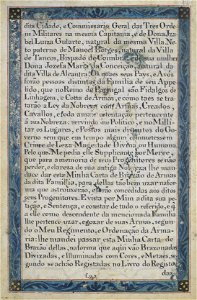 dita Cidade, e Commissario Geral das Tres Orde
ns Militares na mesma Capitania, e de Dona
Luiza Gularte, natural da mesma Villa. Ne
to paterno de Manoel Borges, natural da Villa
de Tancos, Bispado de Coimbra, e de sua mulher
Dona Josefa Maria da Conceição, natural da
dita Villa de Alcantra. Os quaes seus Pays, e Avós
forão pessoas distinctas da Familia de seu Appe
lido, que no Reino de Portugal são Fidalgos de
Linhagem, e Cotta de Armas, e como taes se tra
tarão á Ley da Nobreza com Armas, Creados,
Cavallos, e toda a mais ostentação pertencente
á sua Nobreza, servindo no Politico, e no Mili
tar os Lugares, e Postos mais distinctos do Go
verno sem que em tempo algum comettessem
Crime de Leza Magestade Divina, ou Humana.
Pelo que Me pedia elle Supplicante por Mercê,
que para a memoria de seus Progenitores se não
perder, e clareza de sua antiga Nobreza lhe man
dar dar esta Minha Carta de Brazão de Armas
da dita Familia, para dellas tão bem usar na for
ma que as trouxerão, e forão concedidas aos ditos
seus Progenitores. E vista por Mim dita sua Pe
tição, e Sentença, e constar de tudo o referido, e q
a elle como descendente da mencionada Familia
lhe pertence usar, e gozar de suas Armas, segun
do o Meu Regimento, e Ordenação da Arma
ria: lhe mandei passar esta Minha Carta de
Brazão dellas, na forma que aqui vão Brazonadas
Divizadas, e Illuminadas com Cores, e Metaes, se
gundo se achão Registadas no Livro do Registo
das